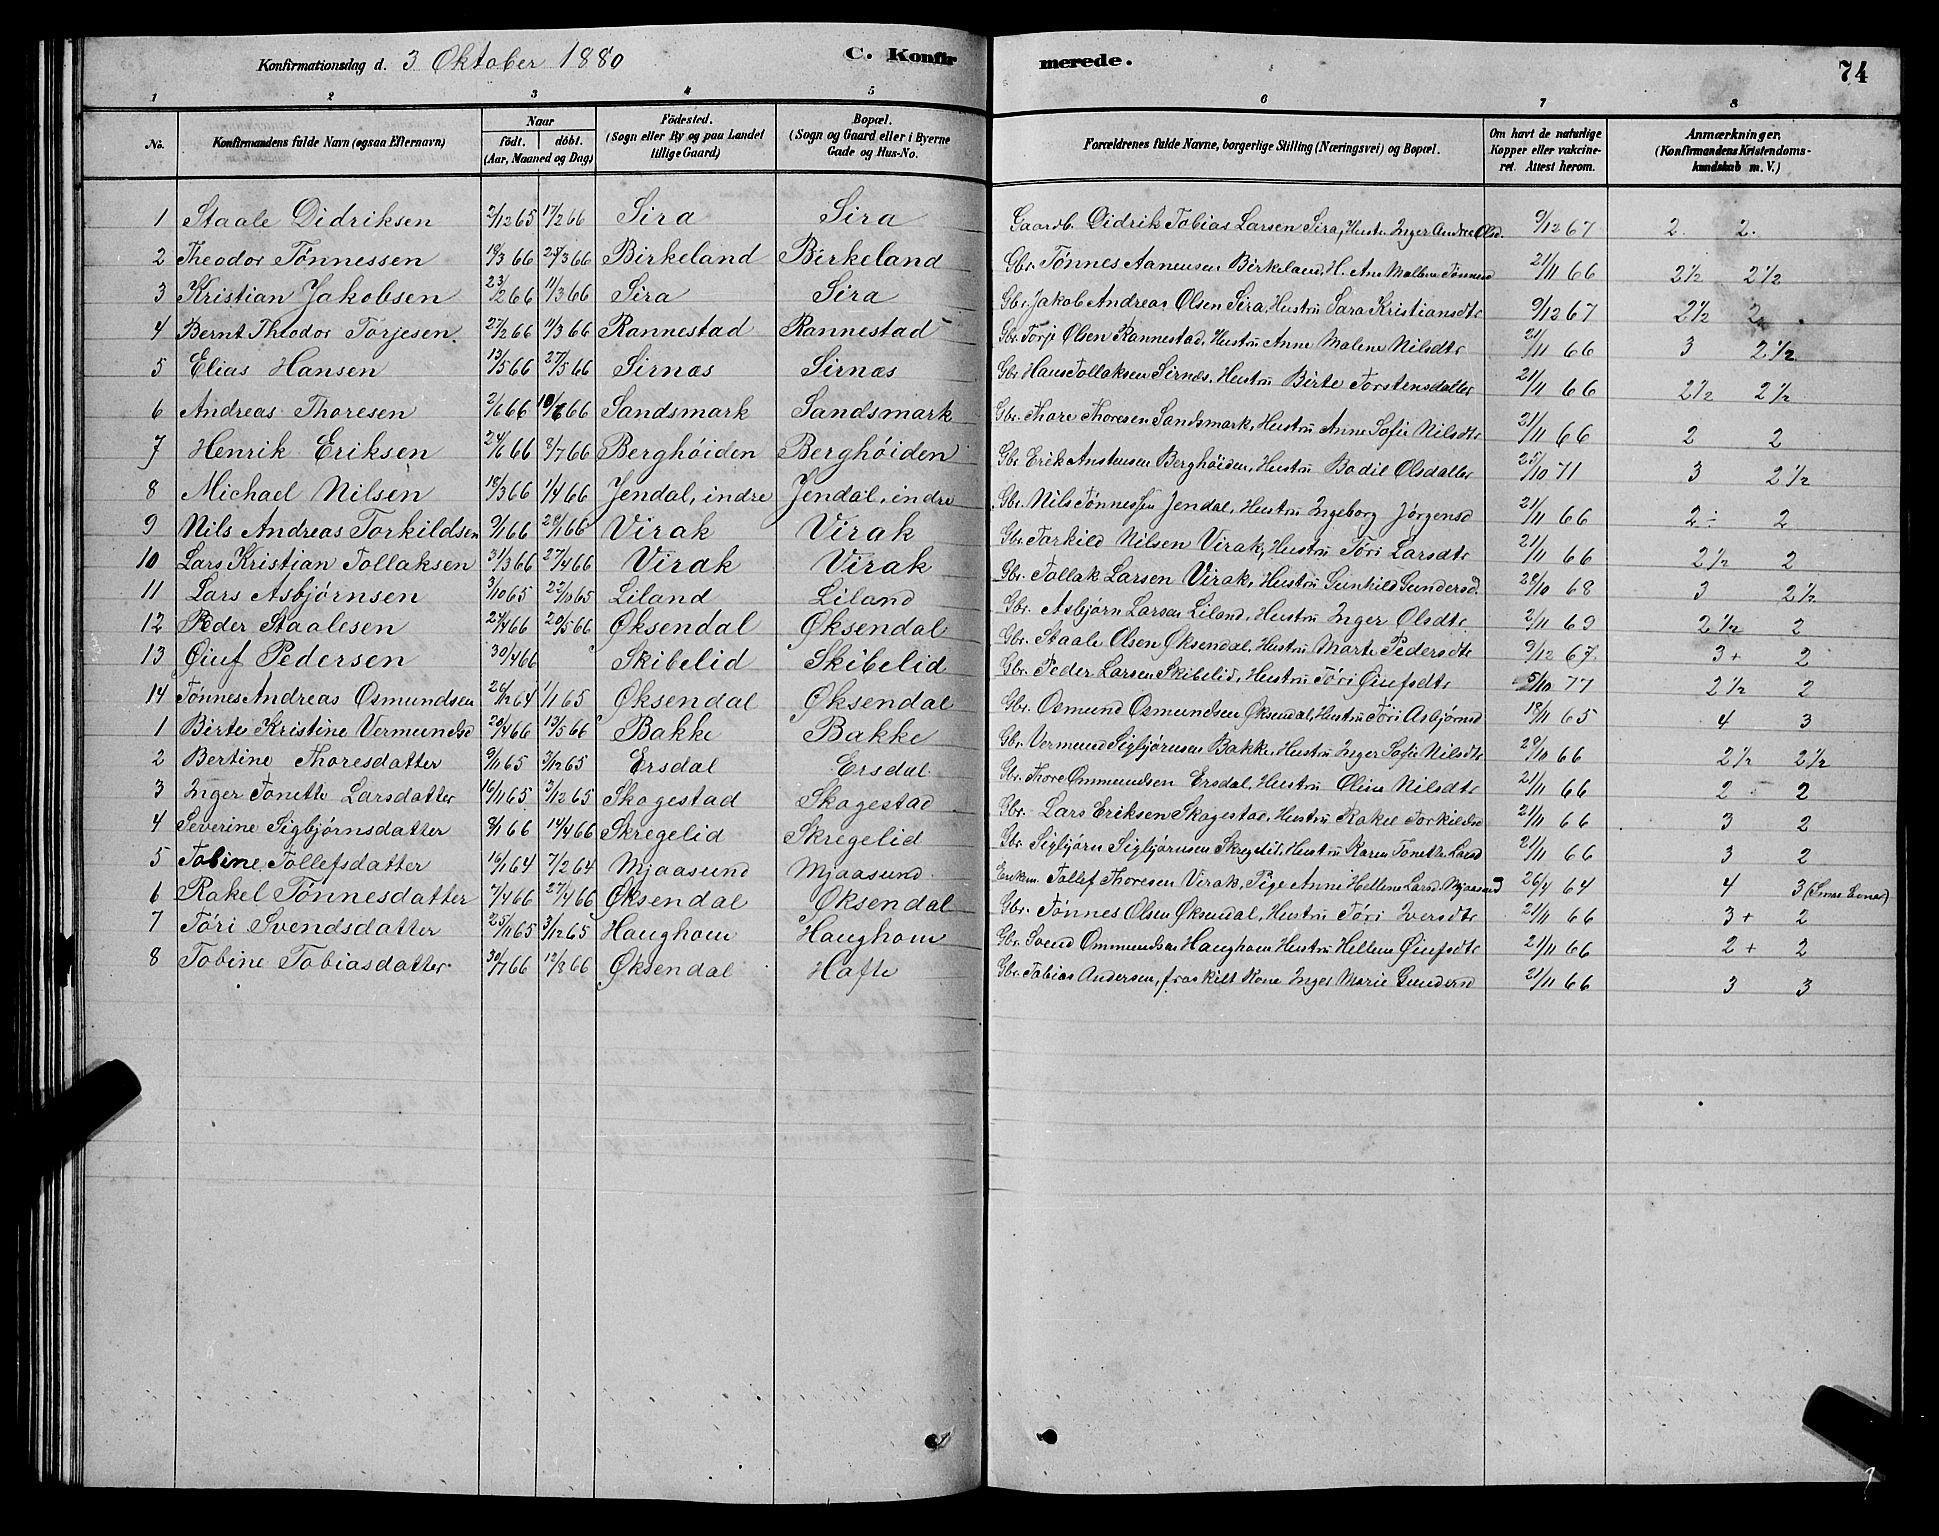 Konfirmationsdag d. 3 Oktober 1880 C. Konfirmerede. 74
1 2 3 4 5 6 7 8
No. Konfirmandens fulde Navn (ogsaa Efternavn) Naar födt. döbt. (Aar, Maaned og Dag) Födested. (Sogn eller By og paa Landet tillige Gaard) Bopæl. (Sogn og Gaard eller i Byerne Gade og Hus-No. Forældrenes fulde Navne, borgerlige Stilling (Næringsvei) og Bopæl. Om havt de naturlige Kopper eller vakcineret. Attest herom. Anmærkninger. (Konfirmandens Kristendomskundskab m. V.)
1 Staale Didriksen 2/12 65 17/2 66 Sira Sira Gaardb. Didrik Tobias Larsen Sira, Hustr. Inger Andrea Olsd. 9/12 67 2. 2.
2 Theodor Tønnessen 10/3 66 24/3 66 Birkeland Birkeland Gbr. Tønnes Aanensen Birkeland, H. Ane Malene Tønnesd 21/11 66 2½ 2½
3 Kristian Jakobsen 23/2 66 11/3 66 Sira Sira Gbr. Jakob Andreas Olsen Sira, Hustru Sara Kristiansdtr 9/12 67 2½ 2
4 Bernt Theodor Torjesen. 27/2 66 11/3 66 Rannestad Rannestad Gbr. Torje Olsen Rannestad, Hustru Anne Malene Nilsdtr 21/11 66 3 2½
5 Elias Hansen 13/5 66 27/5 66 Sirnæs Sirnæs Gbr. Hans Tollaksen Sirnæs, Hustru Birte Torstensdatter 21/11 66 2½ 2½
6 Andreas Thoresen 2/6 66 10/6 66 Sandsmark Sandsmark Gbr. Thore Thoresen Sandsmark, Hustru Anne Sofie Nilsdtr 21/11 66 2 2
7 Henrik Eriksen 24/6 66 8/7 66 Berghöiden Berghöiden Gbr. Erik Anstensen Berghöiden, Hustru Bodil Olsdatter 25/10 71 3 2½
8 Michael Nilsen 18/3 66 1/4 66 Jendal, indre Jendal, indre Gbr. Nils Tønnessen Jendal, Hustru Ingeborg Jörgensd 21/11 66 2÷ 2
9 Nils Andreas Torkildsen 9/1 66 28/1 66 Virak Virak Gbr. Torkild Nilsen Virak, Hustru Töri Larsdtr 21/11 66 2½ 2
10 Lars Kristian Tollaksen 31/3 66 27/4 66 Virak Virak Gbr. Tollak Larsen Virak, Hustru Gunhild Gundersd. 28/10 68 3 2½
11 Lars Asbjørnsen 3/10 65 22/10 65 Liland Liland Gbr. Asbjørn Larsen Liland, Hustru Inger Olsdtr 2/11 69 2½ 2
12 Peder Staalesen 24/4 66 20/5 66 Øksendal Øksendal Gbr. Staale Olsen Øksendal, Hustru Marte Pedersdtr 9/12 67. 3+ 2
13 Øiuf Pedersen 30/4 66 Skibelid Skibelid Gbr. Peder Larsen Skibelid, Hustru Töri Øiufsdtr 5/10 77 2½ 2
14 Tønnes Andreas Osmundsen 26/12 64 1/1 65 Øksendal Øksendal Gbr. Osmund Osmundsen Øksendal, Hustru Töri Asbjørnsd 18/11 65 4 3
1 Birte Kristine Vermundsd 20/4 66 13/5 66 Bakke Bakke Gbr. Vermund Sigbjørnsen Bakke, Hustru Inger Sofie Nilsdtr 20/10 66 2½ 2½
2 Bertine Thoresdatter 9/11 65 3/12 65 Ersdal Ersdal Gbr. Thore Ommundsen Ersdal, Hustru Oline Nilsdtr 21/11 66 2 2
3 Inger Tonette Larsdatter 16/11 65 3/12 65 Skogestad Skogestad Gbr. Lars Eriksen Skogestad, Hustru Rakel Torkildsd 21/11 66 3 2
4 Severine Sigbjørnsdatter 8/1 66 14/4 66 Skregelid Skregelid Gbr. Sigbjørn Sigbjørnsen Skregelid, Hustru Karen Tonette Larsd 21/11 66 3 2
5 Tobine Tollefsdatter 16/1 64 7/2 64 Mjaasund Mjaasund. Enkem. Tollef Thoresen Virak, Pige Anne Hellene Larsd. Mjaasund 26/4 64 4 3
6 Rakel Tønnesdatter 7/4 66 27/4 66 Øksendal Øksendal Gbr. Tønnes Olsen Øksendal, Hustru Töri Iversdtr 21/11 66 3+ 2
7 Töri Svendsdatter 25/11 65 3/12 65 Haughom Haughom Gbr. Svend Ommundsen Haughom Hustru Hellene Øiufsdtr 21/11 66 2+ 2
8 Tobine Tobiasdatter 30/7 66 12/8 66 Øksendal Hafte Gbr. Tobias Andersen, fraskilt Kone Inger Marie Gundersd 21/11 66 3 3